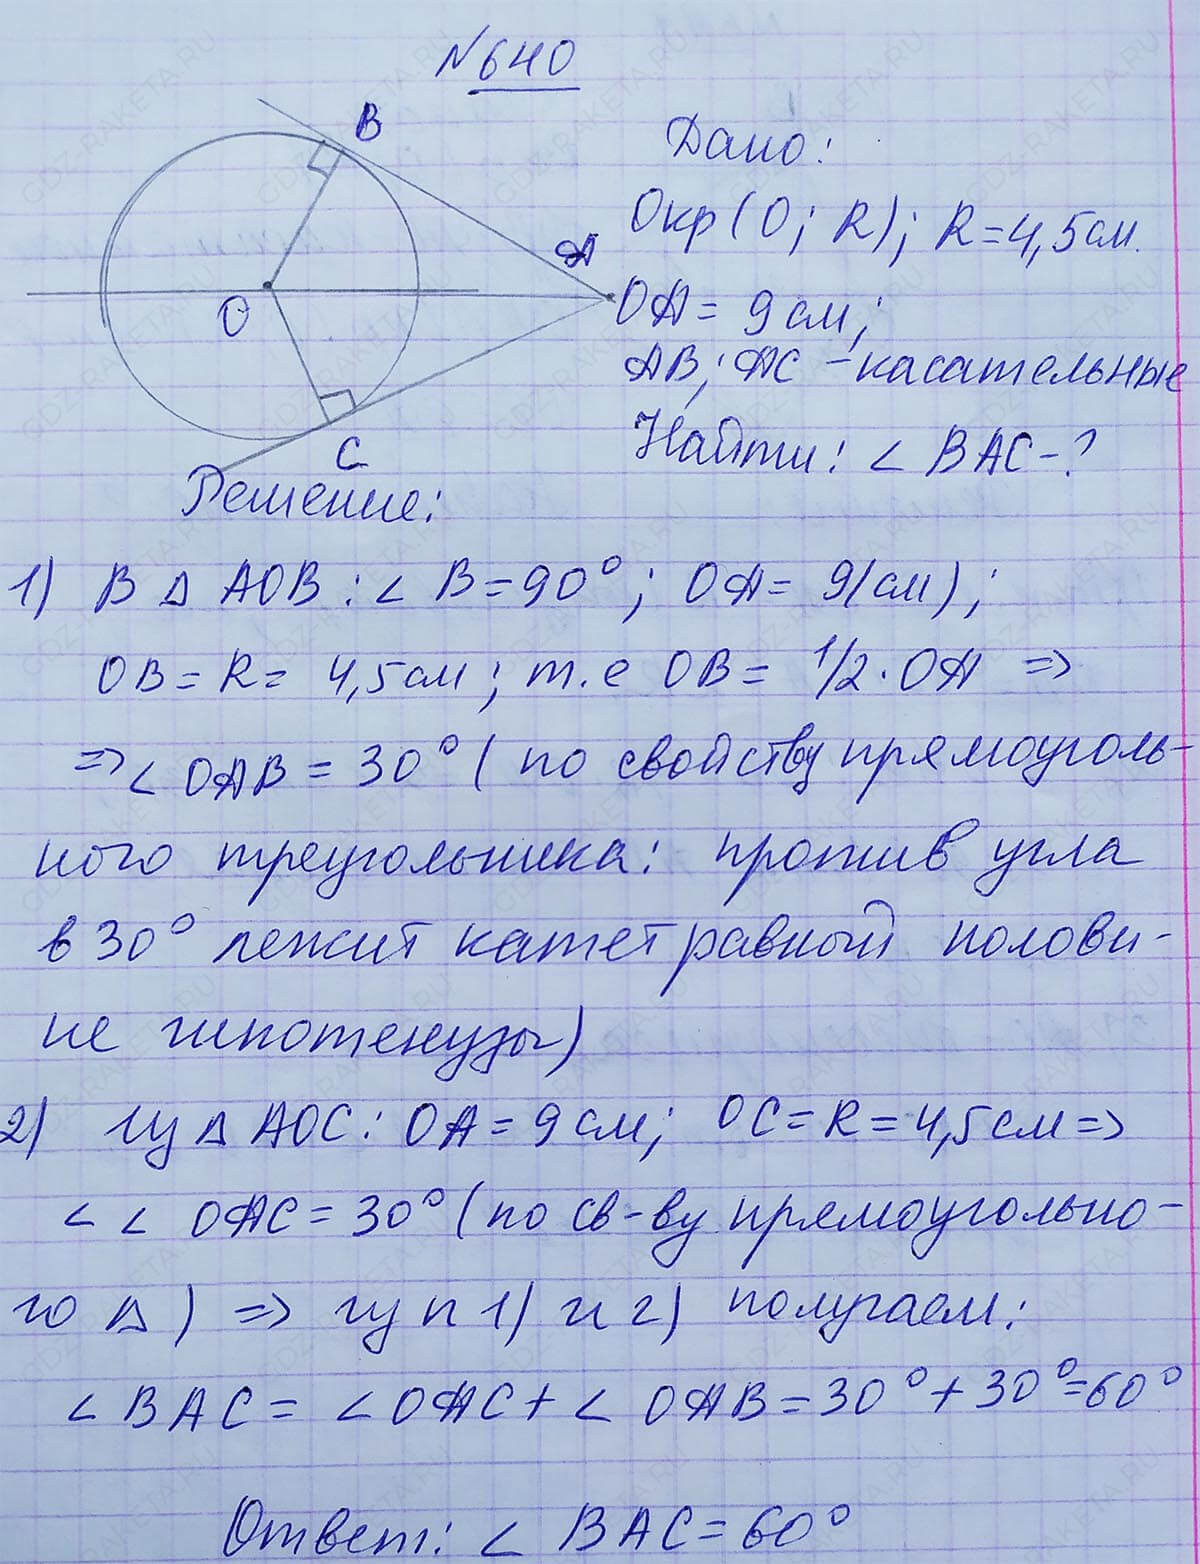 №640
B
Дано:
A
Окр(O; R); R=4,5см.
O
OA= 9см;
AB; AC -касательные
C
Найти: ∠ BAC-?
Решение:
1) В Δ AOB: ∠ B=90°; OA= 9(см);
OB=R= 4,5см; т.е OB= 1/2·OA =>
=>∠ OAB=30° (по свойству прямоуголь-
ного треугольника: против угла
в 30° лежит катет равный полови-
не гипотенузы)
2) Из Δ AOC: OA=9см; OC=R=4,5см=>
∠ ∠ OAC=30° (по св-ву прямоугольно-
го Δ) => из п 1) и 2) получаем:
∠ BAC= ∠OAC+ ∠ OAB=30°+30°=60°
Ответ: ∠ BAC=60°
GDZ-RAKETA.RU